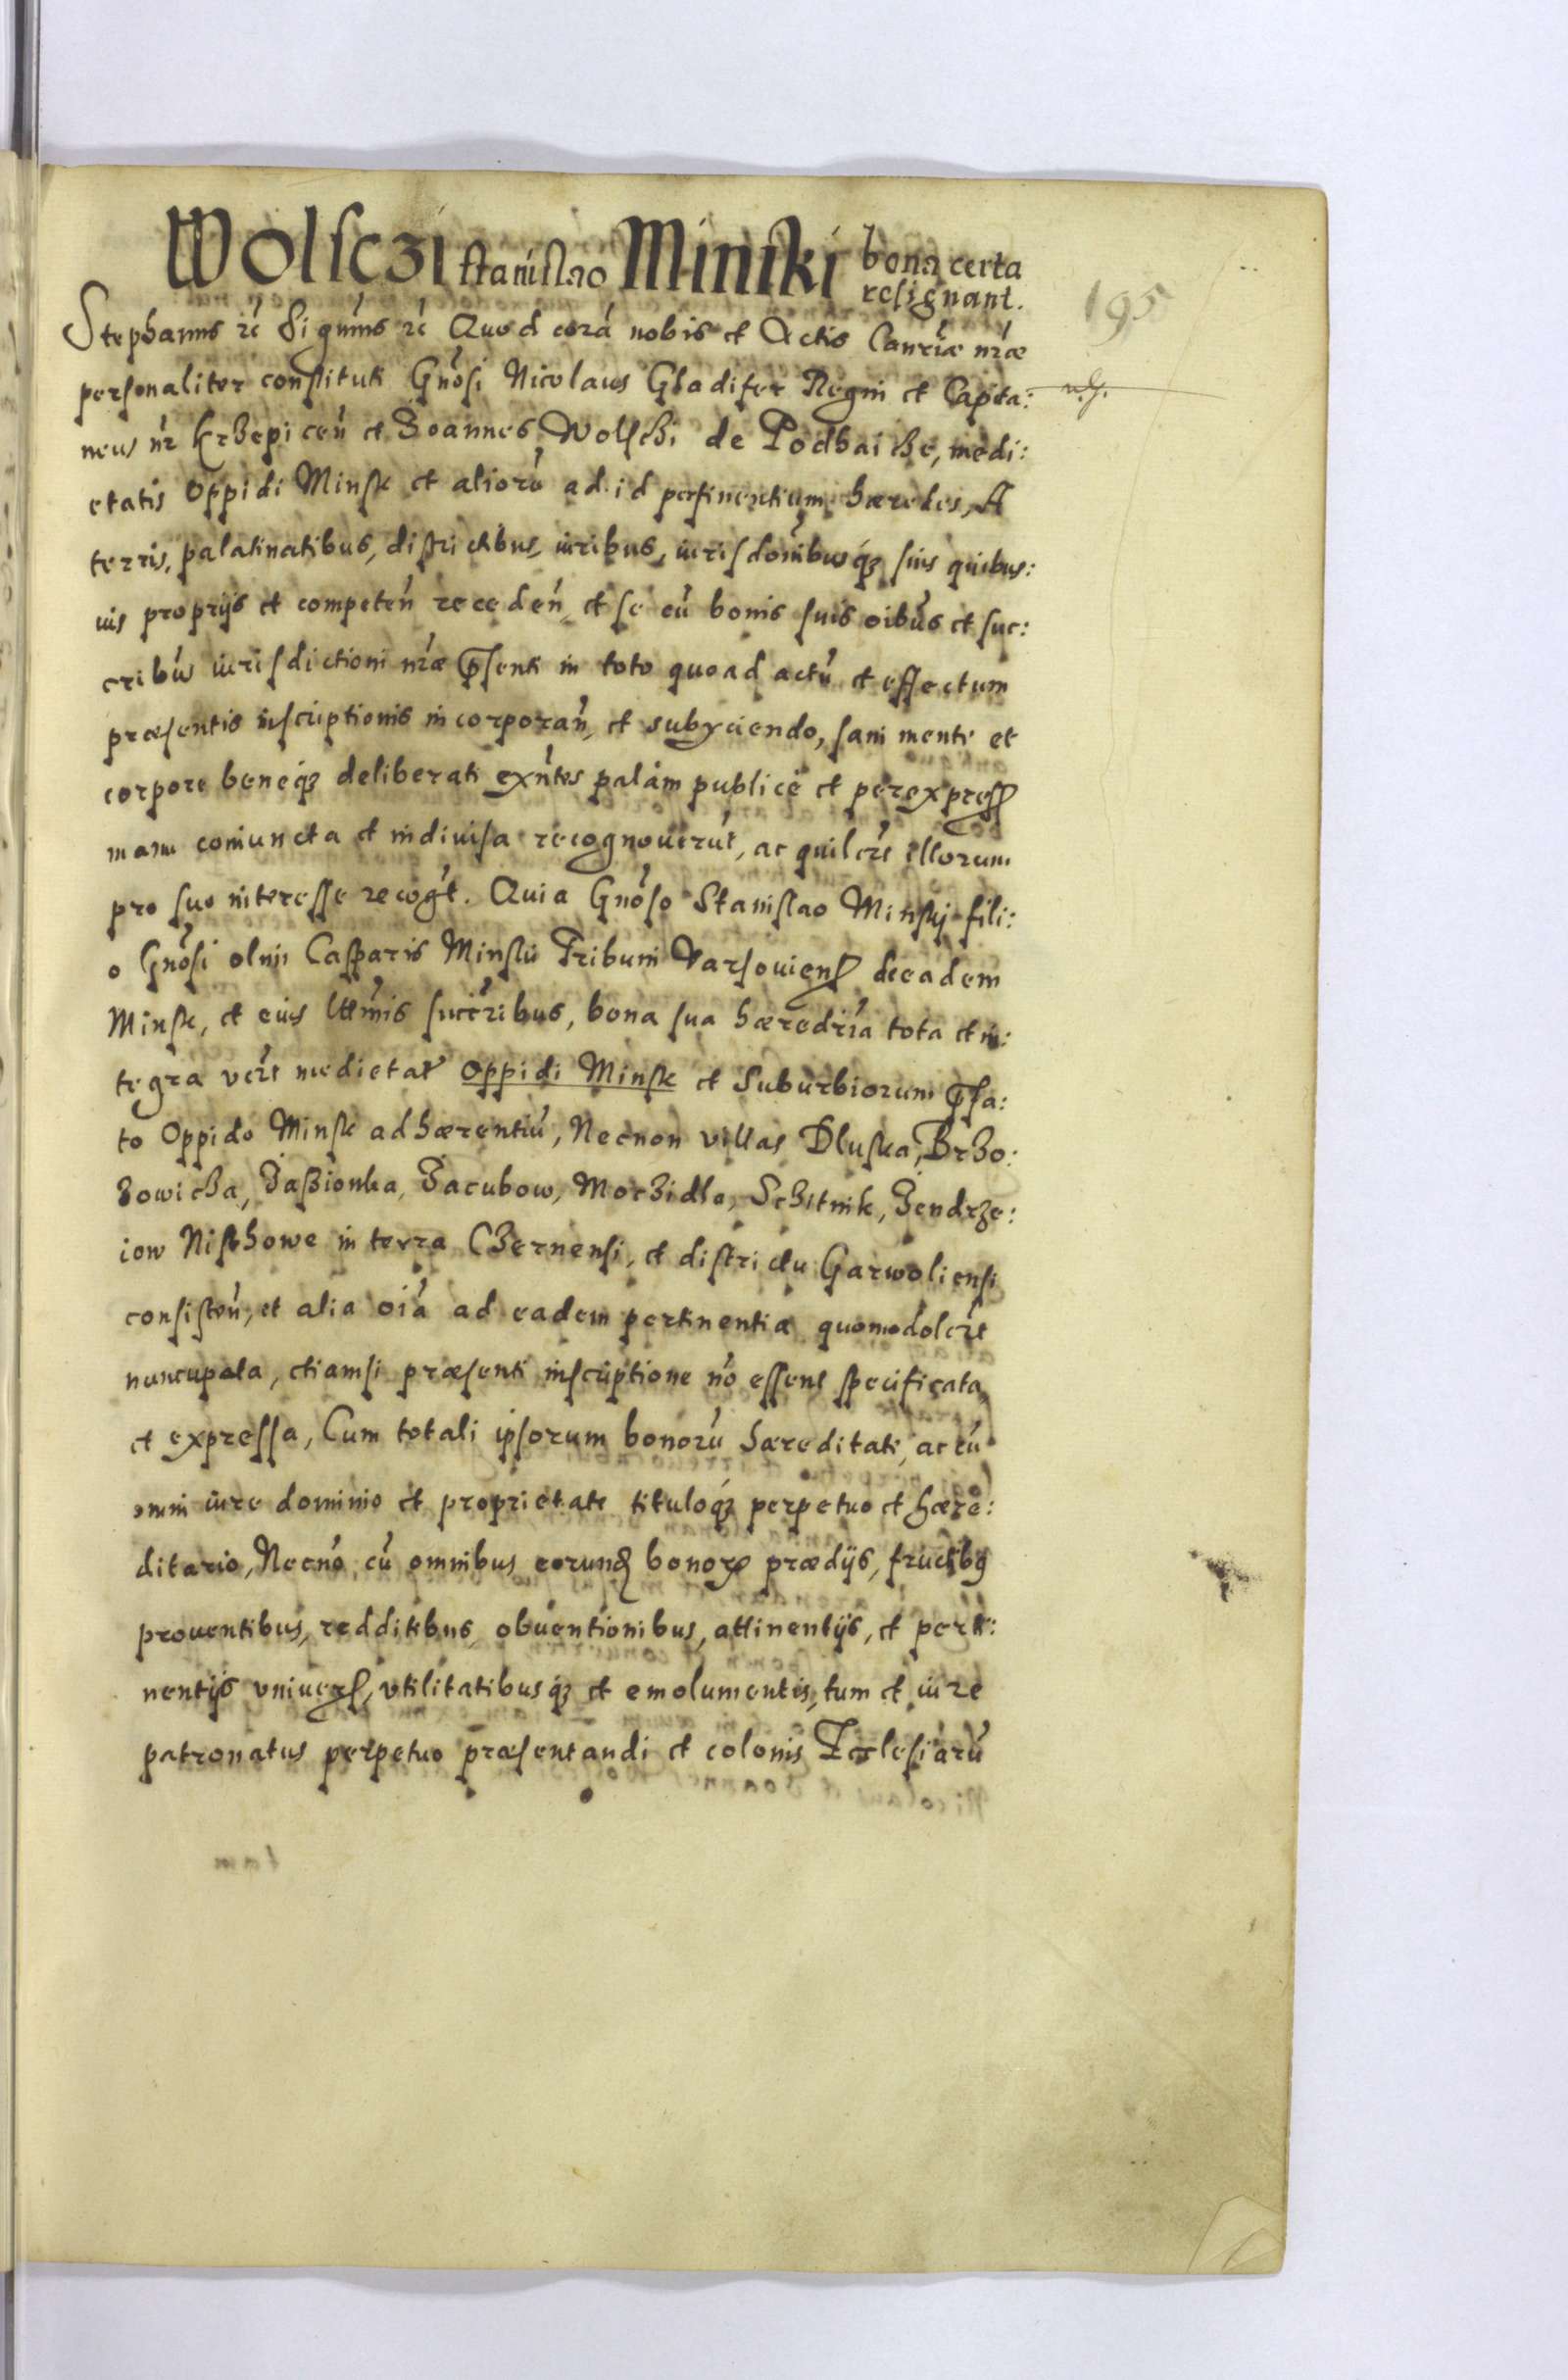 Wolsczi stanislao Minski bona certa
resignant.
195
Stephanus rc̃ Signm̃s rc̃ Quod corã nobis et Actis Canrĩæ nr̃æ
personaliter constituti Gnõsi Nicolaus Gladifer Regni et Capita:
neus nr̃ Krzepiceñ et Joannes Wolschi de Podbaicze, medi:
etatis Oppidi Minsk et aliorũ ad id pertinentium hæredes, A
terris, palatinatibus, districtibus, iuribus, iurisdõnibusq₃ suis quibus:
uis proprijs et competeñ recedeñ, et se cũ bonis suis oĩbus et suc:
cribũs iurisdictioni nr̃æ p̃senti in toto quoad actũ et effectum
præsentis inscriptionis incorporañ, et subyciendo, sani mente et
corpore beneq₃ deliberati exñtes palàm publicè et per expreſſ
manu coniuncta et indiuisa recognouerũt, ac quilr̃t illorum
pro suo interesse recogt̃. Quia Gnõso Stanislao Minskj fili:
o Gnõsi olim Casparis Minskii Tribuni Varsouienß de eadem
Minsk, et eius lttm̃is succr̃ibus, bona sua hæredr̃ia tota et in:
tegra vcr̃t medietat̃ Oppidi Minsk et Suburbiorum p̃fa:
to Oppido Minsk adhærentiũ, Necnon villas Dluska, Brzo:
zowicza, Jaßionka, Jacubow, Moczidla, Sczitnik, Jendrze:
iow Nisthowe in terra Czernensi, et districtu Garwoliensi
consisteñ, et alia oĩa ad eadem pertinentia quomodolr̃t
nuncupata, etiamsi præsenti inscriptione nõ essent specificata
et expressa, Cum totali ipsorum bonorũ hæreditate, ac cũ
omni iure dominio et proprietate tituloq₃ perpetuo et hære:
ditario, Necnõ cũ omnibus eorund bonor prædijs, fructib9
prouentibus, redditibus, obuentionibus, attinentijs, et perti:
nentijs vniuerß, vtilitatibusq₃ et emolumentis, tum et iure
patronatus perpetuo præsentandi et colonis Ecclesiarũ